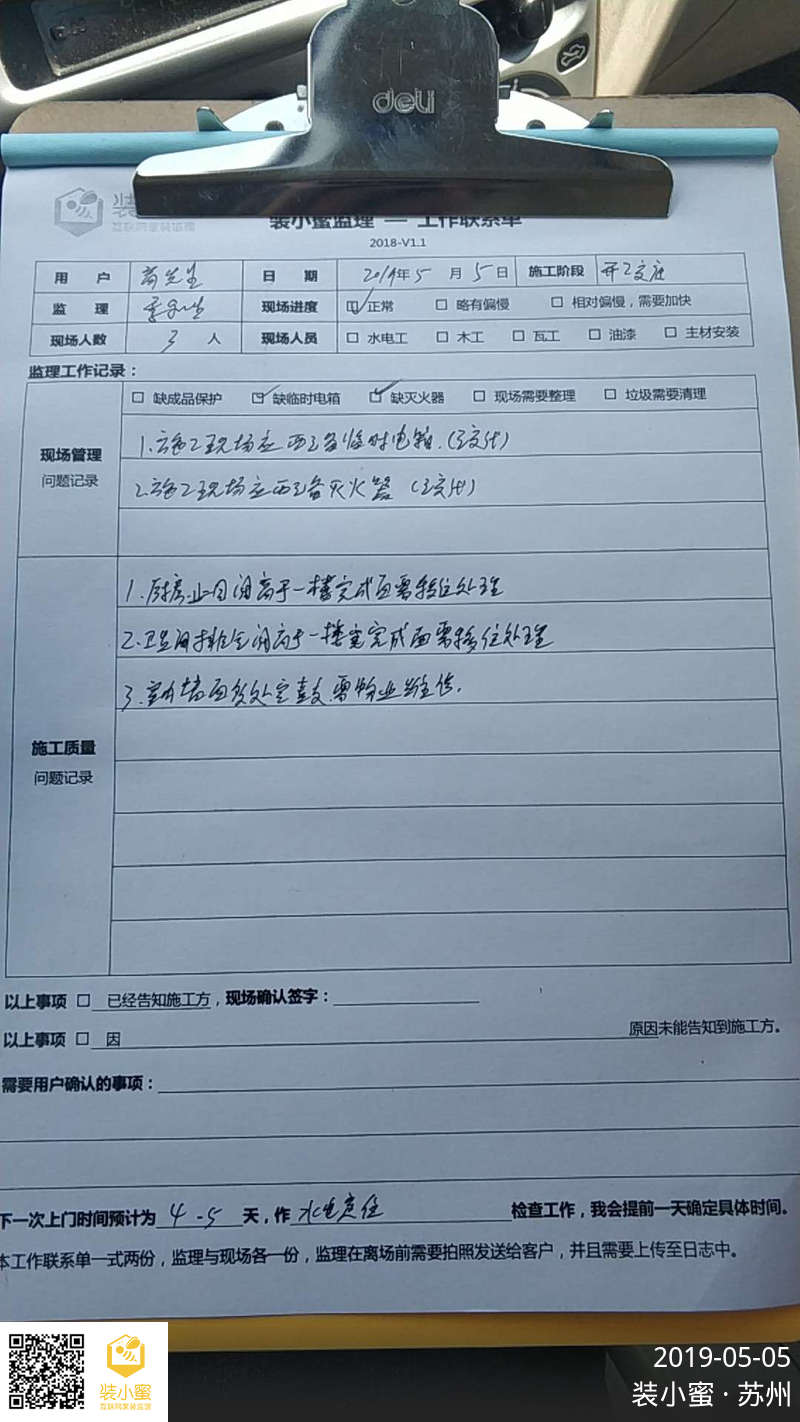 deli
装
互联网家装监理
装小蜜监理 — 工作联系单
2018-V1.1
用 户 先生 日 期 2019年5月5日 施工阶段 开工交底
监 理 李先生 现场进度 ☑正常 □ 略有偏慢 □ 相对偏慢，需要加快
现场人数 3 人 现场人员 □ 水电工 □ 木工 □ 瓦工 □ 油漆 □ 主材安装
监理工作记录：
□ 缺成品保护 ☑ 缺临时电箱 ☑ 缺灭火器 □ 现场需要整理 □ 垃圾需要清理
现场管理
问题记录
1.施工现场应配备临时电箱.(已交代)
2.施工现场应配备灭火器 (已交代)
1.厨房止回阀高于一楼完成面需移位处理
2.卫生间排气阀高于一楼完成面需移位处理
3.室内墙面多处空鼓需物业维修.
施工质量
问题记录
以上事项 □ 已经告知施工方，现场确认签字：
以上事项 □ 因 原因未能告知到施工方。
需要用户确认的事项：
下一次上门时间预计为 4-5 天，作 水电定位 检查工作，我会提前一天确定具体时间。
本工作联系单一式两份，监理与现场各一份，监理在离场前需要拍照发送给客户，并且需要上传至日志中。
装小蜜
互联网家装监理
2019-05-05
装小蜜·苏州